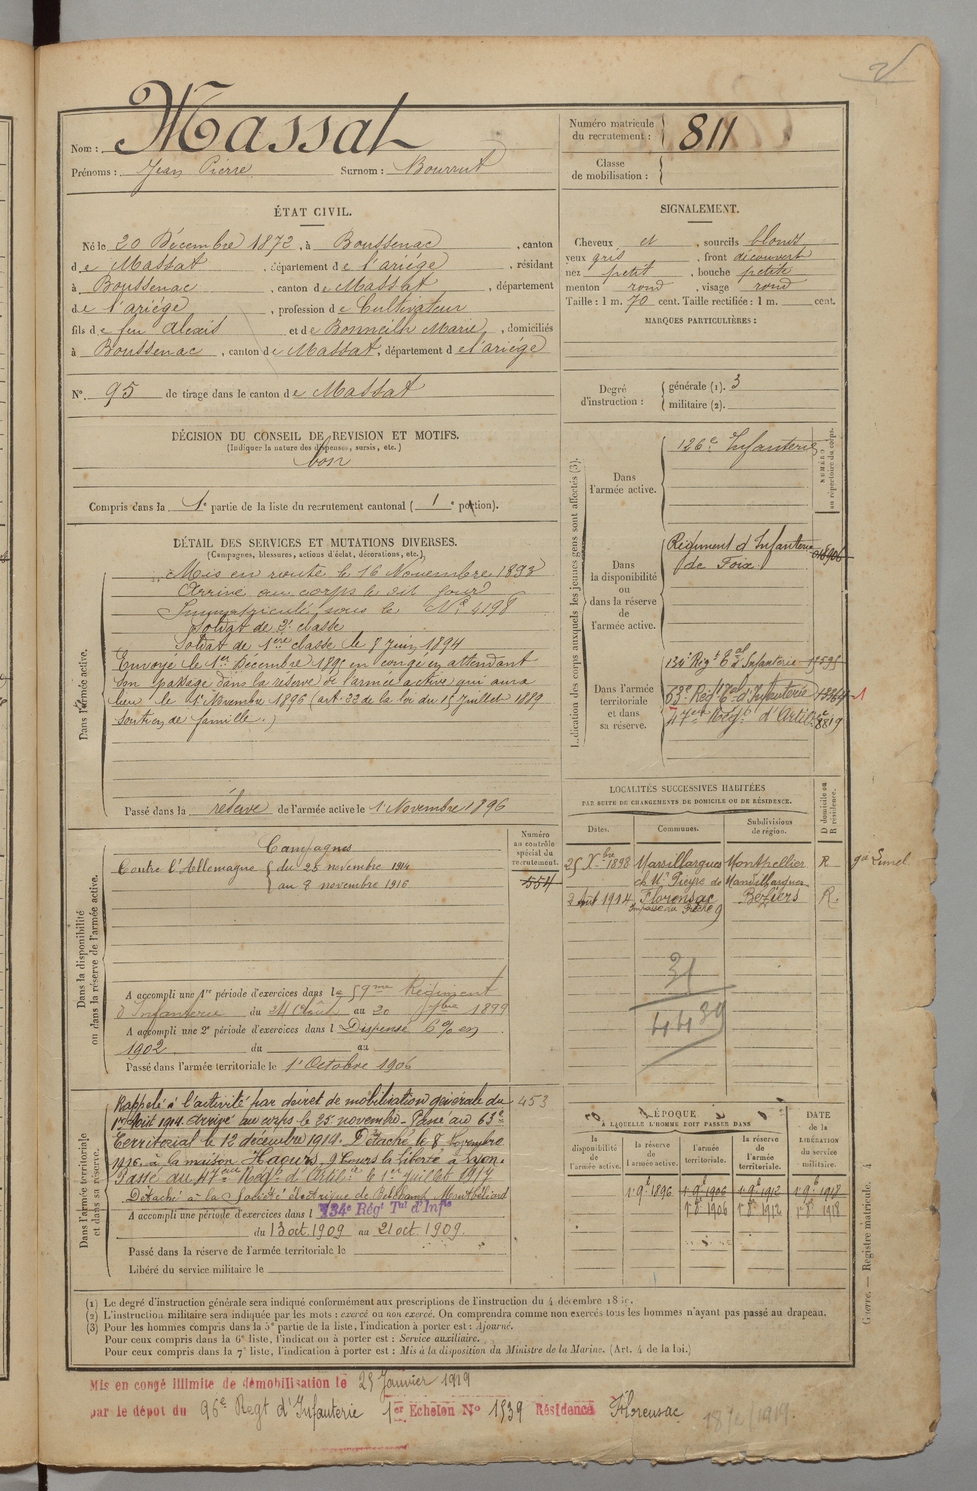 Nom : Massat
Prénoms : Jean Pierre Surnom : Bourrut
Numéro matricule du recrutement : 811
Classe de mobilisation :
ÉTAT CIVIL.
Né le 20 Décembre 1872, à Boussenac, canton
de Massat, département de l'ariége, résidant
à Boussenac, canton de Massat, département
de l'ariége, profession de Cultivateur
fils de feu Alexis et de Bonneilh Marie, domiciliés
à Boussenac, canton de Massat, département de l'ariége
N° 95 de tirage dans le canton de Massat
SIGNALEMENT.
Cheveux et, sourcils blonds
yeux gris, front découvert
nez petit, bouche petite
menton rond, visage rond
Taille : 1 m. 70 cent. Taille rectifiée : 1 m. cent.
MARQUES PARTICULIÈRES :
Degré d'instruction : générale (1). 3
militaire (2).
DÉCISION DU CONSEIL DE REVISION ET MOTIFS.
(Indiquer la nature des dispenses, sursis, etc.)
bon
Compris dans la 1e partie de la liste du recrutement cantonal ( 1 e portion).
DÉTAIL DES SERVICES ET MUTATIONS DIVERSES.
(Campagnes, blessures, actions d'éclat, décorations, etc.)
Dans l'armée active.
Mis en route le 16 Novembre 1893
Arrivé au corps le dit jour
Immatriculé sous le N° 4198
Soldat de 2e classe
Soldat de 1ère classe le 8 juin 1894
Envoyé le 1er Décembre 1895 en congé en attendant
son passage dans la réserve de l'armée active qui aura
lieu le 1er Novembre 1896 (art. 22 de la loi du 15 Juillet 1889
soutien de famille.)
Passé dans la réserve de l'armée active le 1 Novembre 1896
Indication des corps auxquels les jeunes gens sont affectés (3).
NUMÉRO au répertoire du corps.
Dans l'armée active.
126e Infanterie
Dans la disponibilité ou dans la réserve de l'armée active.
Régiment d'Infanterie
de Foix
Dans l'armée territoriale et dans sa réserve.
134e Régt Tal d'Infanterie
63e Régt Tal d'Infanterie
47eme Régt d'Artie 8819
LOCALITÉS SUCCESSIVES HABITÉES
PAR SUITE DE CHANGEMENTS DE DOMICILE OU DE RÉSIDENCE.
Dates. Communes. Subdivisions de région. D domicile ou R résidence.
25 Xbre 1898 Marsillargues Montpellier R
ch Mr Pieyre de Mandillargues
2 Août 1914 Florensac Béziers R.
31
4439
Dans la disponibilité ou dans la réserve de l'armée active.
Numéro au contrôle spécial du recrutement.
554
Campagnes
Contre l'Allemagne du 25 novembre 1914
au 9 novembre 1916
A accompli une 1re période d'exercices dans le 59me Régiment
d'Infanterie du 24 Août au 20 7bre 1899
A accompli une 2e période d'exercices dans l Dispensé 6% en
1902 du au
Passé dans l'armée territoriale le 1er Octobre 1906
Dans l'armée territoriale et dans sa réserve.
453
Rappelé à l'activité par décret de mobilisation générale du
1er Août 1914. Arrivé au corps le 25 novembre. Passé au 63e
Territorial le 12 décembre 1914. Détaché le 8 Novembre
1916 à la maison 9 Cours la Liberté à Lyon.
Passé au 47eme Régt d'Artie le 1er juillet 1917
Détaché à la Société électrique de Montbéliard
A accompli une période d'exercices dans l 134e Régt Tal d'Infie
du 13 oct 1909 au 21 oct 1909.
Passé dans la réserve de l'armée territoriale le
Libéré du service militaire le
ÉPOQUE À LAQUELLE L'HOMME DOIT PASSER DANS
la disponibilité de l'armée active.
la réserve de l'armée active.
l'armée territoriale.
la réserve de l'armée territoriale.
DATE de la LIBÉRATION du service militaire.
1 9e 1896 1 9e 1906 1 9e 1912 1 9e 1918
1 8e 1906 1 8e 1912 1 8e 1918
(1) Le degré d'instruction générale sera indiqué conformément aux prescriptions de l'instruction du 4 décembre
(2) L'instruction militaire sera indiquée par les mots : exercé ou non exercé. On comprendra comme non exercés tous les hommes n'ayant pas passé au drapeau.
(3) Pour les hommes compris dans la 5e partie de la liste, l'indication à porter est : Ajourné.
Pour ceux compris dans la 6e liste, l'indication à porter est : Service auxiliaire.
Pour ceux compris dans la 7e liste, l'indication à porter est : Mis à la disposition du Ministre de la Marine. (Art. 4 de la loi.)
Guerre. — Registre matricule. 4
Mis en congé illimité de démobilisation le 25 Janvier 1919
par le dépôt du 96e Regt d'Infanterie 1er Echelon N° 1539 Résidence Florensac